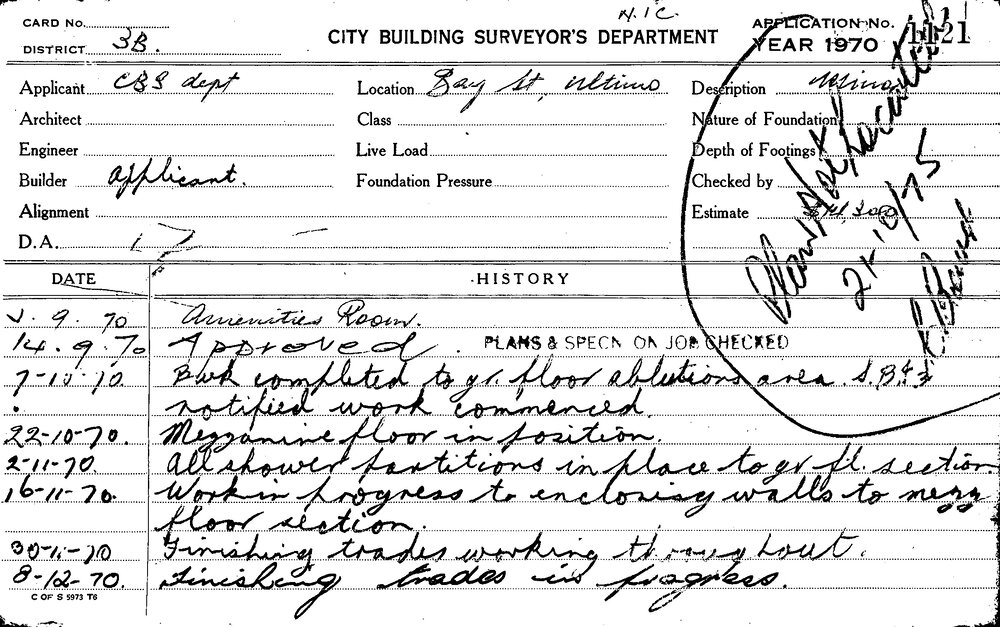 N.I.C.
CARD No.
DISTRICT 3B.
CITY BUILDING SURVEYOR'S DEPARTMENT
APPLICATION No. 1121
YEAR 1970
Applicant CBS dept
Location Bay St, Ultimo
Description
Architect
Class
Nature of Foundation
Engineer
Live Load
Depth of Footings
Builder applicant.
Foundation Pressure
Checked by
Alignment
Estimate
D.A.
Plan Not Located
21/10/75
DATE
HISTORY
9.70 Amenities Room.
14.9.70 Approved. PLANS & SPECN ON JOB CHECKED
7-10-70 Bwk completed to gr. floor ablutions area. S.B.
notified work commenced.
22-10-70. Mezzanine floor in position.
2-11-70 All shower partitions in place to gr fl. section
16-11-70. Work in progress to enclosing walls to mezz
floor section.
30-11-70 Finishing trades working throughout.
8-12-70. Finishing trades in progress.
C OF S 5973 T6